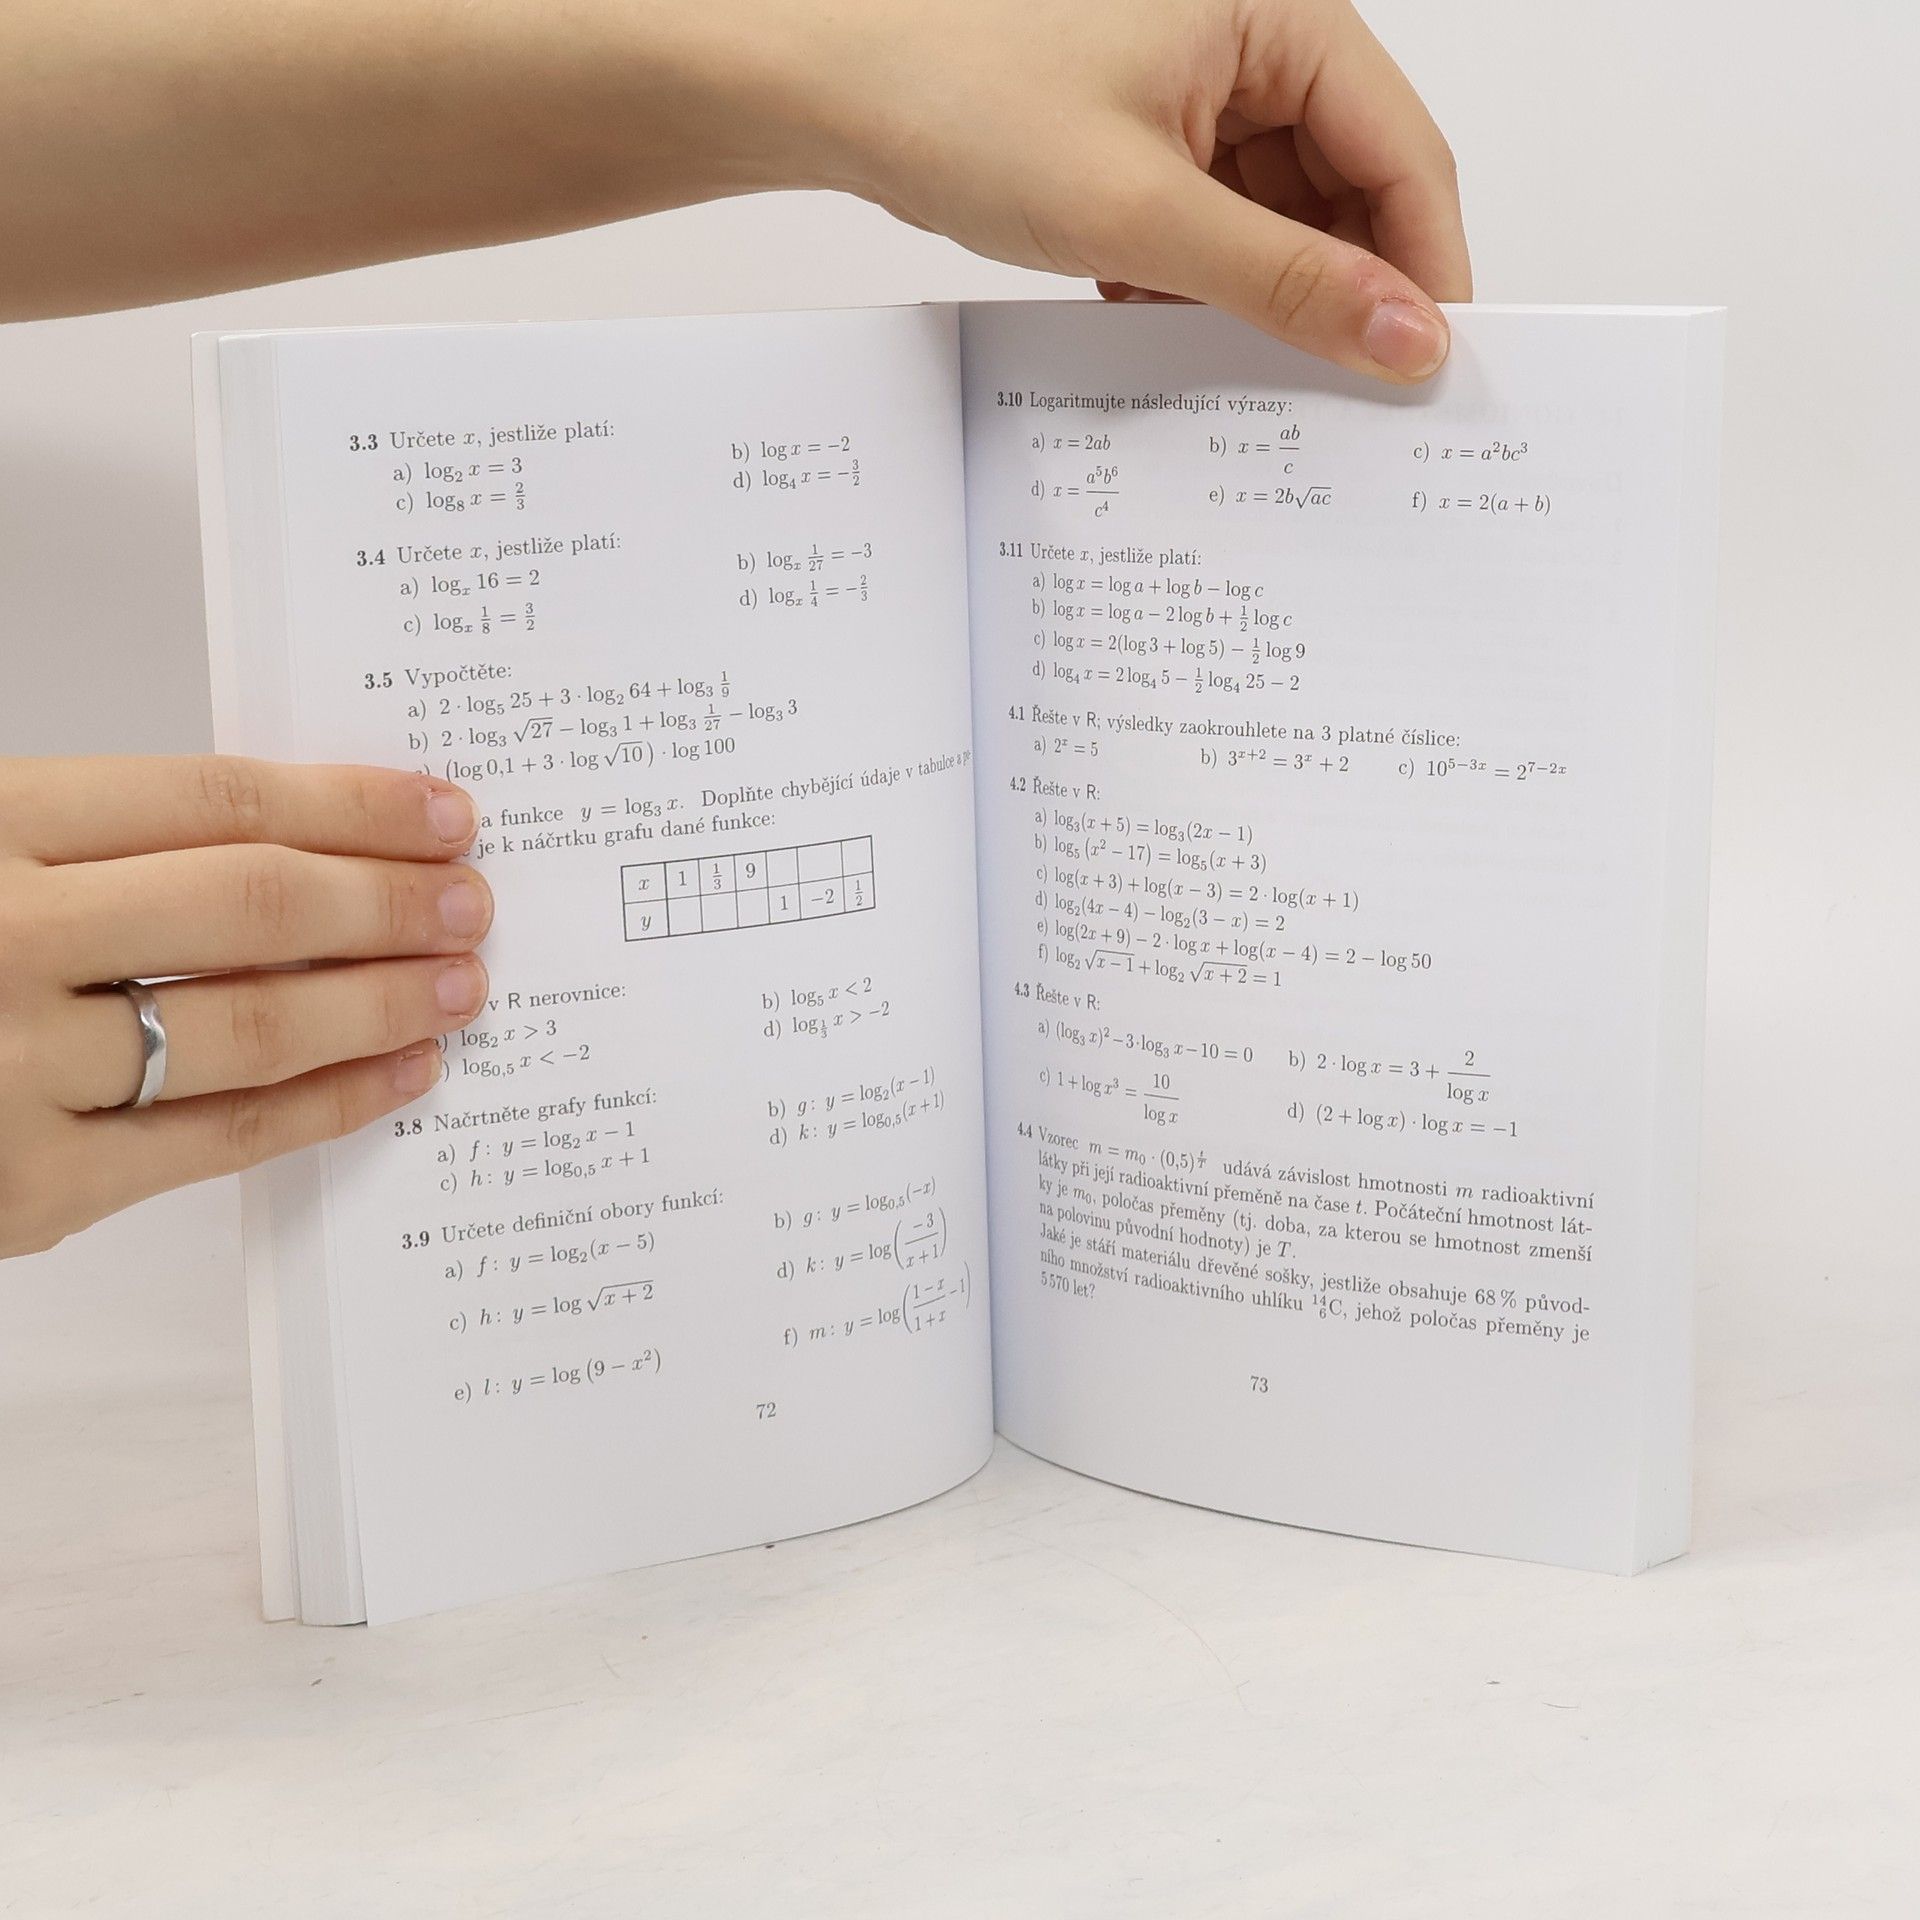 3.3 Určete x, jestliže platí:
a) log₂ x = 3 b) log x = −2
c) log₈ x = 2/3 d) log₄ x = −3/2
3.4 Určete x, jestliže platí:
a) logₓ 16 = 2 b) logₓ 1/27 = −3
c) logₓ 1/8 = 3/2 d) logₓ 1/4 = −2/3
3.5 Vypočtěte:
a) 2 · log₅ 25 + 3 · log₂ 64 + log₃ 1/9
b) 2 · log₃ √27 − log₃ 1 + log₃ 1/27 − log₃ 3
(log 0,1 + 3 · log √10) · log 100
a funkce y = log₃ x. Doplňte chybějící údaje v tabulce a
je k náčrtku grafu dané funkce:
x 1 1/3 9
y 1 −2 1/2
v R nerovnice:
) log₂ x > 3 b) log₅ x < 2
) log₀,₅ x < −2 d) log_{1/3} x > −2
3.8 Načrtněte grafy funkcí:
a) f: y = log₂ x − 1 b) g: y = log₂(x − 1)
c) h: y = log₀,₅ x + 1 d) k: y = log₀,₅(x + 1)
3.9 Určete definiční obory funkcí:
a) f: y = log₂(x − 5) b) g: y = log₀,₅(−x)
c) h: y = log √(x + 2) d) k: y = log(−3/(x + 1))
e) l: y = log (9 − x²) f) m: y = log((1 − x)/(1 + x) − 1)
72
3.10 Logaritmujte následující výrazy:
a) x = 2ab b) x = ab/c c) x = a²bc³
d) x = a⁵b⁶/c⁴ e) x = 2b√(ac) f) x = 2(a + b)
3.11 Určete x, jestliže platí:
a) log x = log a + log b − log c
b) log x = log a − 2 log b + 1/2 log c
c) log x = 2(log 3 + log 5) − 1/2 log 9
d) log₄ x = 2 log₄ 5 − 1/2 log₄ 25 − 2
4.1 Řešte v R; výsledky zaokrouhlete na 3 platné číslice:
a) 2ˣ = 5 b) 3ˣ⁺² = 3ˣ + 2 c) 10⁵⁻³ˣ = 2⁷⁻²ˣ
4.2 Řešte v R:
a) log₃(x + 5) = log₃(2x − 1)
b) log₅ (x² − 17) = log₅(x + 3)
c) log(x + 3) + log(x − 3) = 2 · log(x + 1)
d) log₂(4x − 4) − log₂(3 − x) = 2
e) log(2x + 9) − 2 · log x + log(x − 4) = 2 − log 50
f) log₂ √(x − 1) + log₂ √(x + 2) = 1
4.3 Řešte v R:
a) (log₃ x)² − 3·log₃ x − 10 = 0 b) 2 · log x = 3 + 2/log x
c) 1 + log x³ = 10/log x d) (2 + log x) · log x = −1
4.4 Vzorec m = m₀ · (0,5)^{t/T} udává závislost hmotnosti m radioaktivní
látky při její radioaktivní přeměně na čase t. Počáteční hmotnost lát-
ky je m₀, poločas přeměny (tj. doba, za kterou se hmotnost zmenší
na polovinu původní hodnoty) je T.
Jaké je stáří materiálu dřevěné sošky, jestliže obsahuje 68 % původ-
ního množství radioaktivního uhlíku ¹⁴₆C, jehož poločas přeměny je
5 570 let?
73